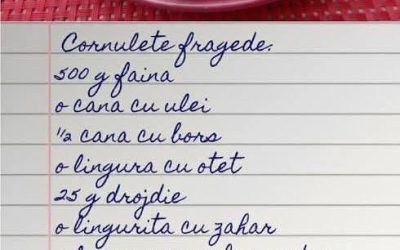 Cornulete fragede:
500 g faina
o cana cu ulei
1/2 cana cu bors
o lingura cu otet
25 g drojdie
o lingurita cu zahar